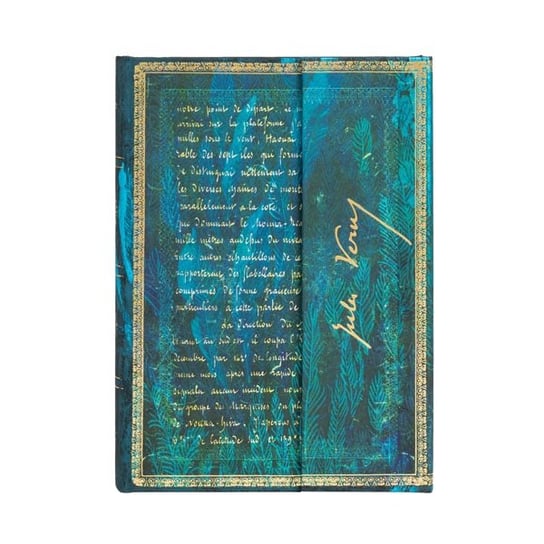 notre point de départ. Le m
arrivai sur la plateforme j'a
milles sous le vent, Haouaï
rable des sept îles que forme
Je distinguai nettement sa
les diverses chaînes de mont
parallèlement à la côte, et s
que dominait le Mouna-Rea
mille mètres audessus du nivea
entre autres échantillons de ce
rapportèrent des flabellaires pa
comprimés de forme gracieuse
particuliers à cette partie de
La direction du
Il coupa l'
décembre par 142° de longitude
même mois après une rapide
signala aucun incident nous
du groupe des Marquises
de Nouka-hiva. J'aperçus à
de latitude sud et 139°
Jules Verne